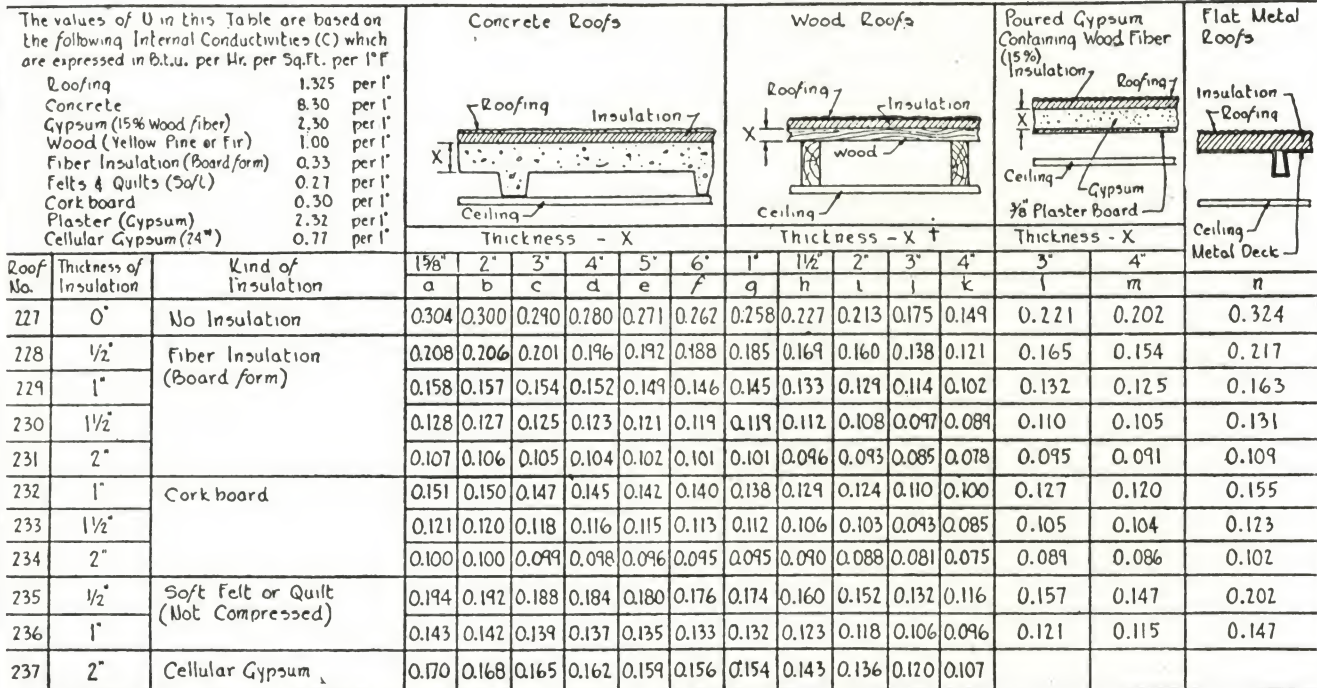 The values of U in this Table are based on
the following Internal Conductivities (C) which
are expressed in B.t.u. per Hr. per Sq.Ft. per 1°F
Roofing 1.325 per 1"
Concrete 8.30 per 1"
Gypsum (15% Wood fiber) 2.30 per 1"
Wood (Yellow Pine or Fir) 1.00 per 1"
Fiber Insulation (Board form) 0.33 per 1"
Felts & Quilts (Soft) 0.27 per 1"
Cork board 0.30 per 1"
Plaster (Gypsum) 2.32 per 1"
Cellular Gypsum (24#) 0.77 per 1"
Concrete Roofs
Roofing
Insulation
X
Ceiling
Thickness - X
Wood Roofs
Roofing
Insulation
X
Wood
Ceiling
Thickness - X †
Poured Gypsum
Containing Wood Fiber
(15%)
Insulation
Roofing
X
Ceiling
Gypsum
3/8" Plaster Board
Thickness - X
Flat Metal
Roofs
Insulation
Roofing
Ceiling
Metal Deck
Roof No. Thickness of Insulation Kind of Insulation 1 5/8" 2" 3" 4" 5" 6" 1" 1 1/2" 2" 3" 4" 3" 4"
a b c d e f g h i j k l m n
227 0" No Insulation 0.304 0.300 0.290 0.280 0.271 0.262 0.258 0.227 0.213 0.175 0.149 0.221 0.202 0.324
228 1/2" Fiber Insulation 0.208 0.206 0.201 0.196 0.192 0.188 0.185 0.169 0.160 0.138 0.121 0.165 0.154 0.217
229 1" (Board form) 0.158 0.157 0.154 0.152 0.149 0.146 0.145 0.133 0.129 0.114 0.102 0.132 0.125 0.163
230 1 1/2" 0.128 0.127 0.125 0.123 0.121 0.119 0.119 0.112 0.108 0.097 0.089 0.110 0.105 0.131
231 2" 0.107 0.106 0.105 0.104 0.102 0.101 0.101 0.096 0.093 0.085 0.078 0.095 0.091 0.109
232 1" Cork board 0.151 0.150 0.147 0.145 0.142 0.140 0.138 0.129 0.124 0.110 0.100 0.127 0.120 0.155
233 1 1/2" 0.121 0.120 0.118 0.116 0.115 0.113 0.112 0.106 0.103 0.093 0.085 0.105 0.104 0.123
234 2" 0.100 0.100 0.099 0.098 0.096 0.095 0.095 0.090 0.088 0.081 0.075 0.089 0.086 0.102
235 1/2" Soft Felt or Quilt 0.194 0.192 0.188 0.184 0.180 0.176 0.174 0.160 0.152 0.132 0.116 0.157 0.147 0.202
236 1" (Not Compressed) 0.143 0.142 0.139 0.137 0.135 0.133 0.132 0.123 0.118 0.106 0.096 0.121 0.115 0.147
237 2" Cellular Gypsum 0.170 0.168 0.165 0.162 0.159 0.156 0.154 0.143 0.136 0.120 0.107